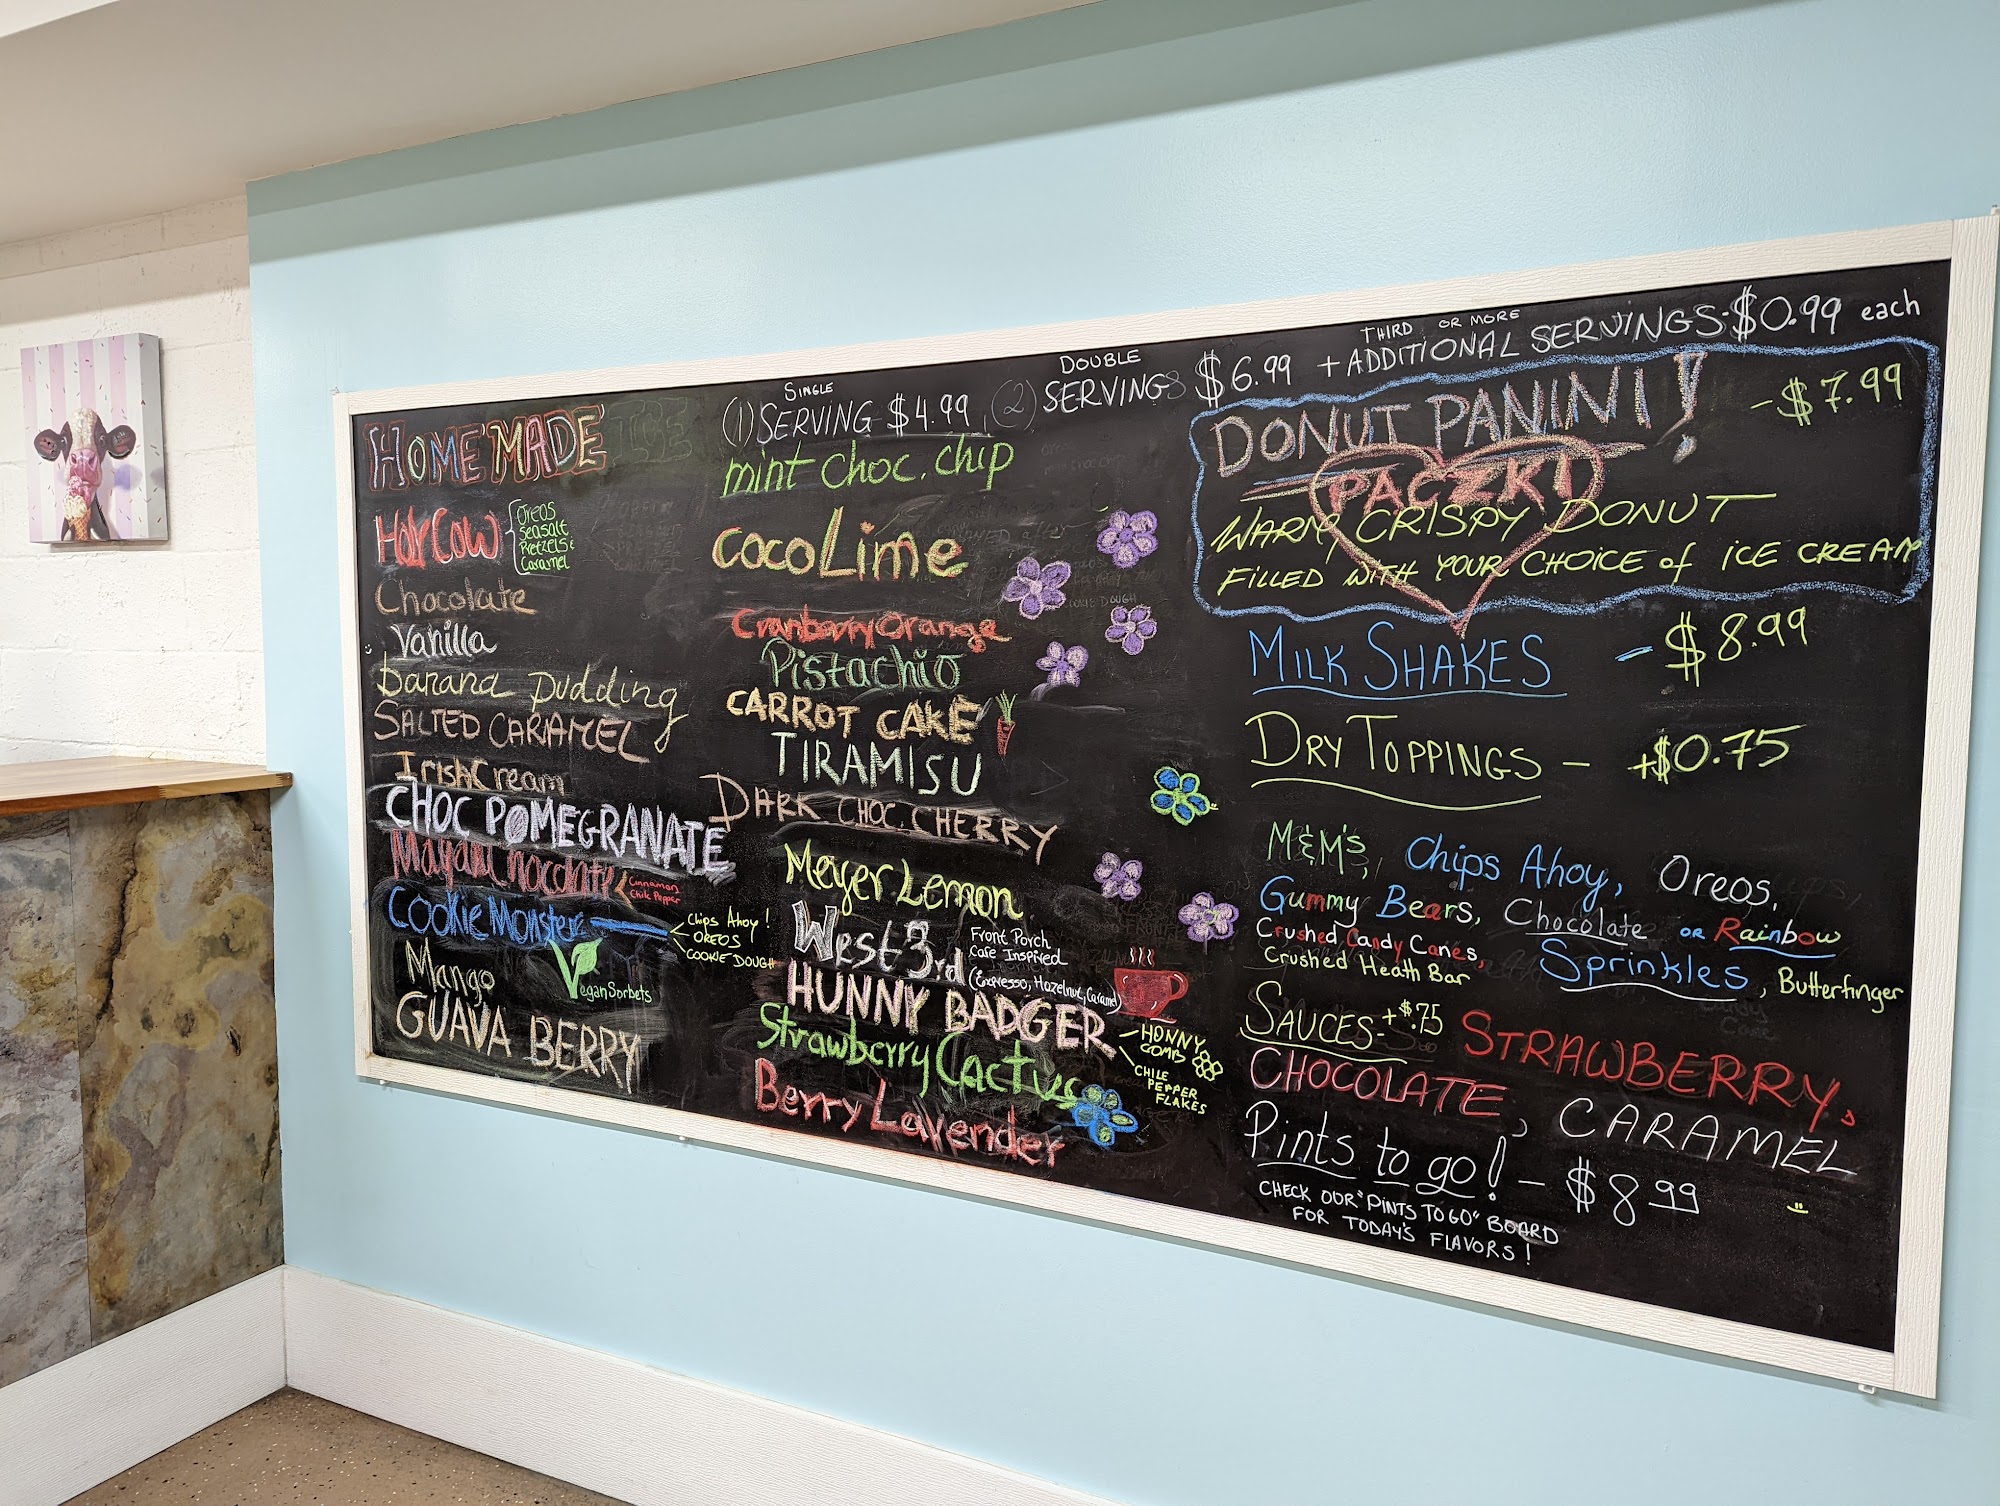 HOMEMADE ICE
HOLY COW
OREOS
SEASALT
PRETZELS &
Caramel
Chocolate
Vanilla
banana pudding
SALTED CARAMEL
IrishCream
CHOC POMEGRANATE
Mayan Chocolate
Cinnamon
Chile Pepper
COOKIE MONSTER
Chips Ahoy!
OREOS
COOKIE DOUGH
Mango
Vegan Sorbets
GUAVA BERRY
SINGLE
(1) SERVING $4.99,
DOUBLE
(2) SERVINGS $6.99
THIRD OR MORE
+ ADDITIONAL SERVINGS-$0.99 each
mint choc. chip
cocoLime
Cranberry Orange
Pistachio
CARROT CAKE
TIRAMISU
DARK CHOC. CHERRY
Meyer Lemon
West 3rd
Front Porch
Cafe Inspired
(Espresso, Hazelnut, Caramel)
HUNNY BADGER
HONNY
COMB
CHILE
PEPPER
FLAKES
Strawberry Cactus
Berry Lavender
DONUT PANINI! - $7.99
PACZKI
WARM, CRISPY DONUT
FILLED WITH YOUR CHOICE of ICE CREAM
MILK SHAKES - $8.99
DRY TOPPINGS - +$0.75
M&M's, Chips Ahoy, Oreos,
Gummy Bears, Chocolate OR Rainbow
Sprinkles, Butterfinger
Crushed Candy Canes,
Crushed Heath Bar
SAUCES- +$.75 STRAWBERRY,
CHOCOLATE, CARAMEL
Pints to go! - $8.99
CHECK OUR "PINTS TO GO" BOARD
FOR TODAY'S FLAVORS!